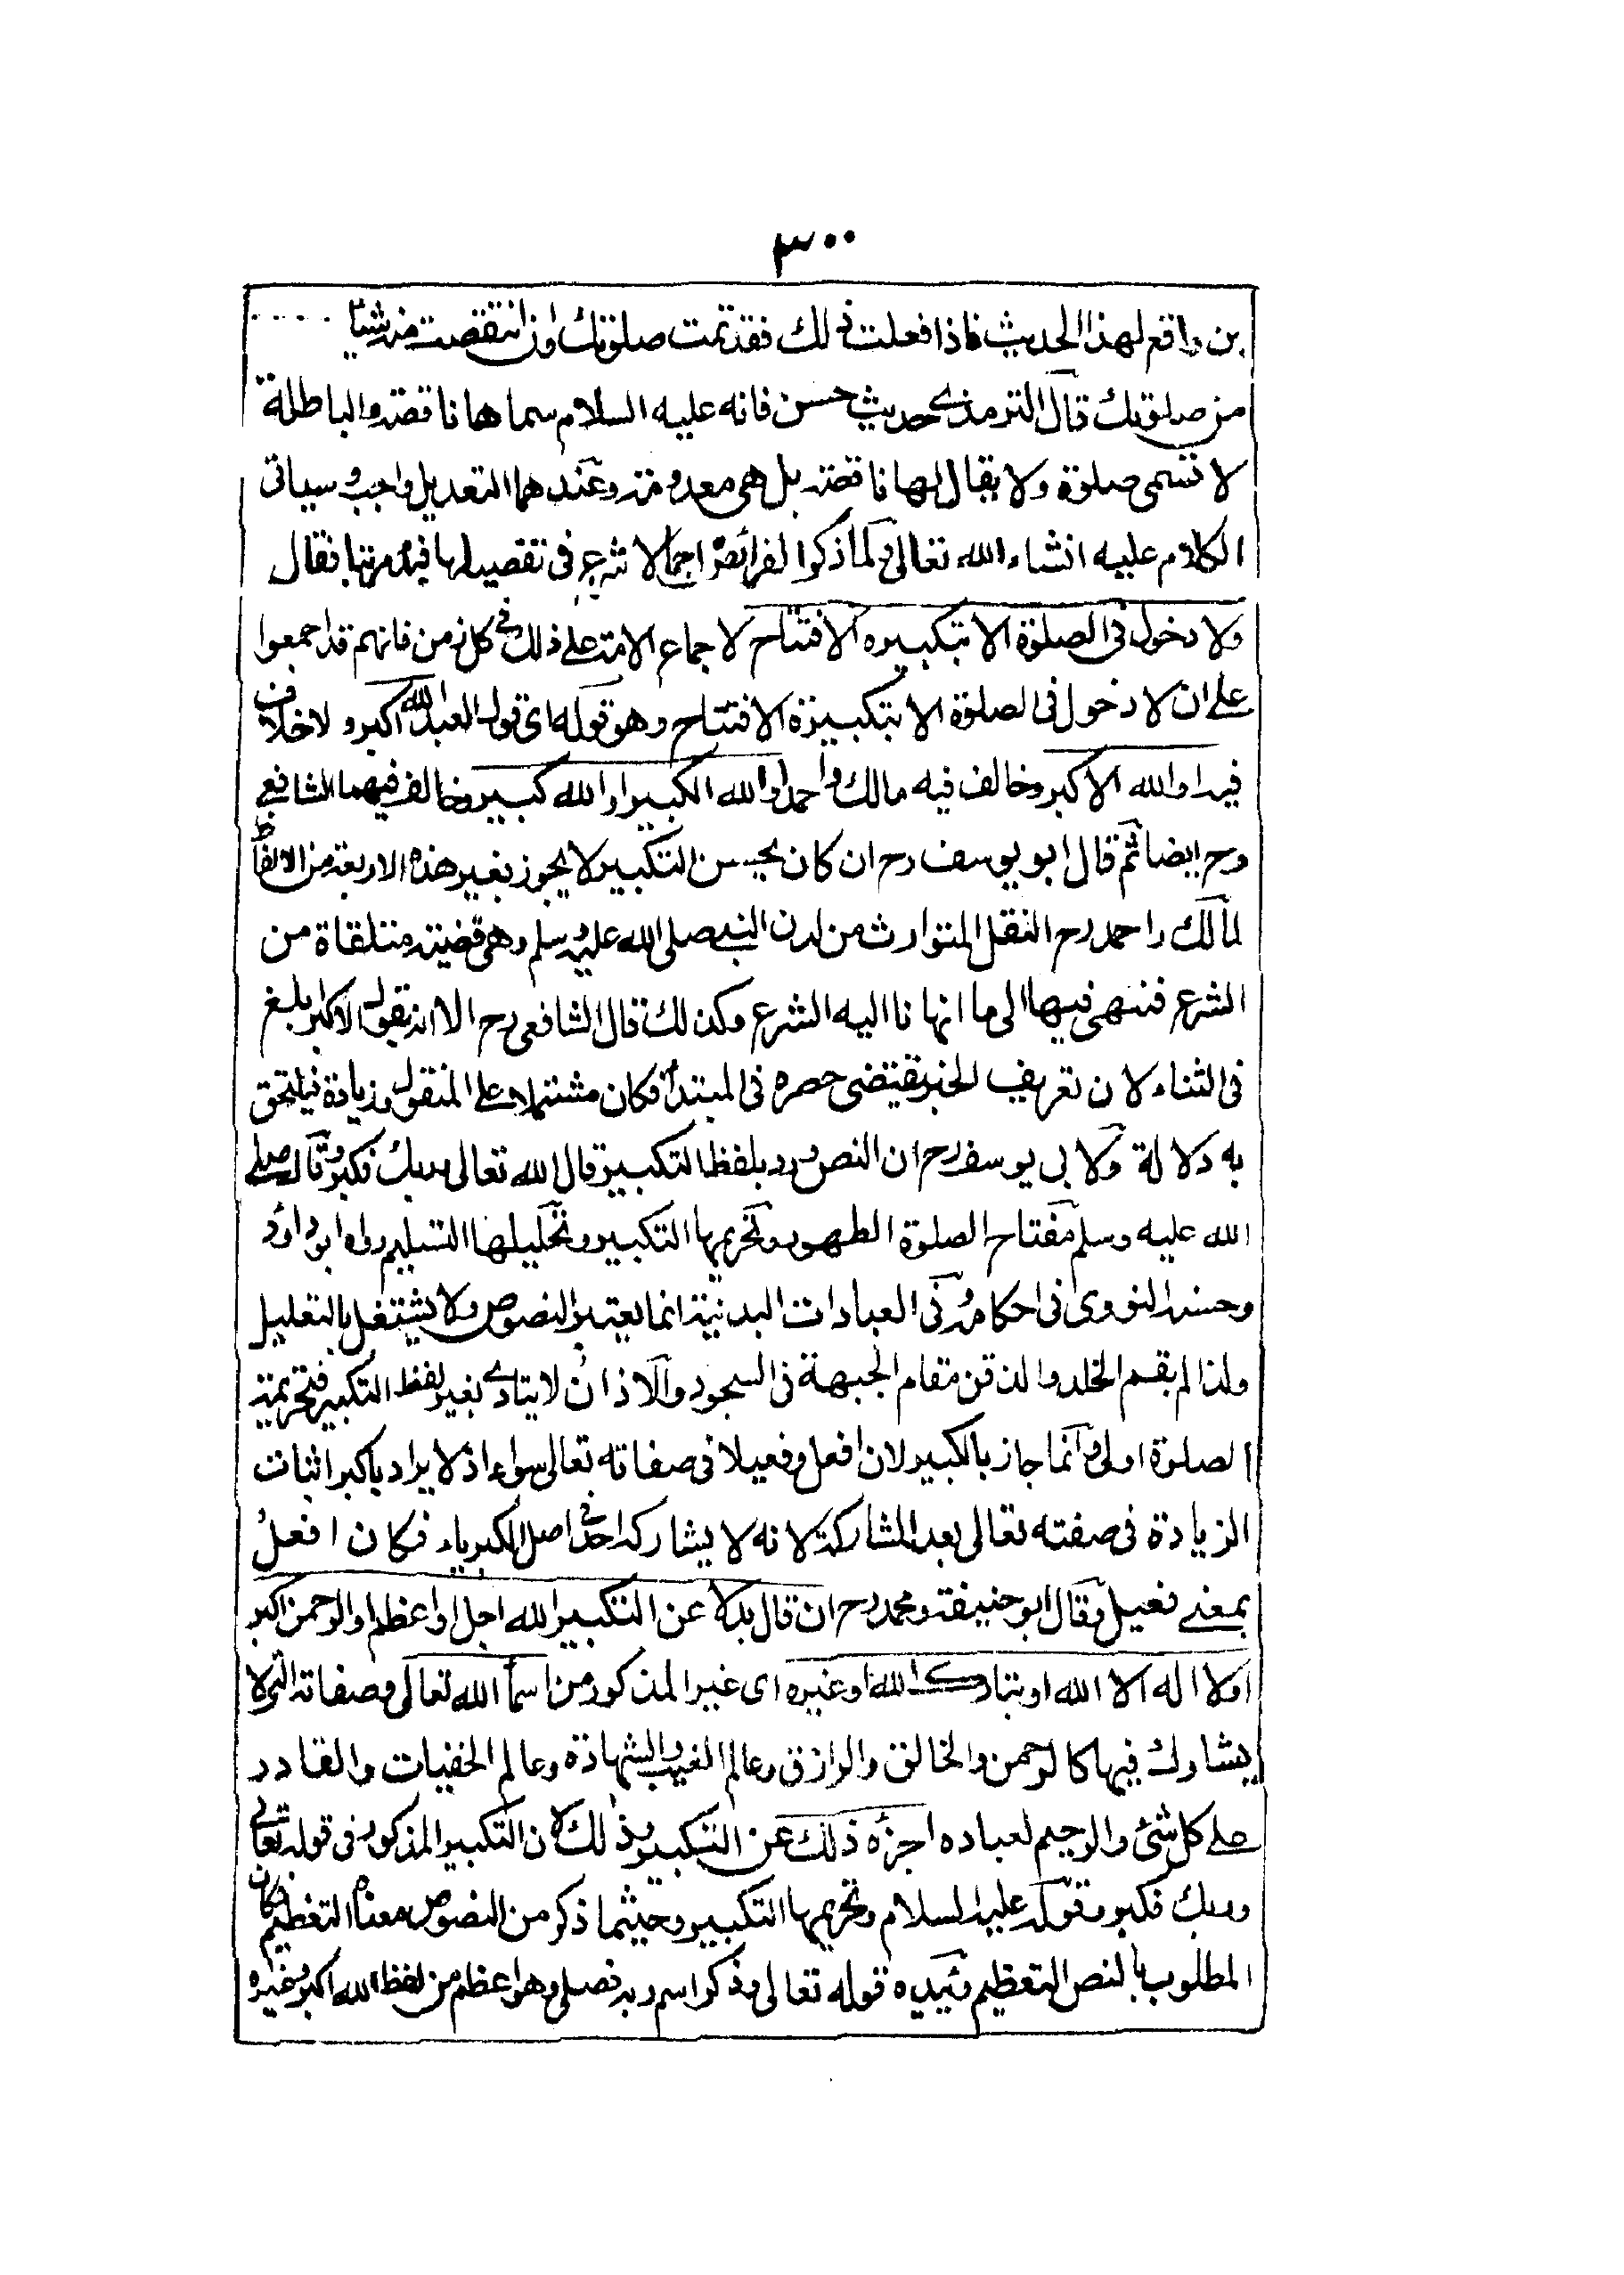 ٣٠٠
بن واقع لهذا الحديث فاذا فعلت ذلك فقد تمت صلوتك وان انتقصت منه شيئا
من صلوتك قال الترمذي حديث حسن فانه عليه السلام سماها ناقصة والباطلة
لا تسمى صلوة ولا يقال لها ناقصة بل هي معدومة وعندهما التعديل واجب وسياتى
الكلام عليه انشاء الله تعالى ولما ذكر الفرائض اجمالا شرع فى تفصيلها فقال
ولا دخول فى الصلوة الا بتكبيره الافتتاح لاجماع الامة على ذلك فى كل زمن فانهم قد اجمعوا
على ان لا دخول فى الصلوة الا بتكبيرة الافتتاح وهو قوله اى قول العبد الله اكبر ولا خلاف
فيه او الله الاكبر وخالف فيه مالك واحمد او الله الكبير او الله كبير وخالف فيهما الشافعي
رح ايضا ثم قال ابو يوسف رح ان كان يحسن التكبير لا يجوز بغير هذه الاربعة من الالفاظ
لمالك واحمد رح النقل المتوارث من لدن النبي صلى الله عليه وسلم وهى قضية متلقاة من
الشرع فننهى فيها الى ما انهانا اليه الشرع وكذلك قال الشافعى رح الا انه يقول الاكبر ابلغ
فى الثناء لان تعريف الخبر يقتضى حصره فى المبتدأ فكان مشتملا على المنقول وزيادة فيلتحق
به دلالة ولابى يوسف رح ان النص ورد بلفظ التكبير قال الله تعالى وربك فكبر وقال صلى
الله عليه وسلم مفتاح الصلوة الطهور وتحريمها التكبير وتحليلها التسليم رواه ابو داؤد
وحسنه النووى فى احكامه وفى العبادات البدنية انما يعتبر النصوص ولا يشتغل بالتعليل
ولذا لم يقم الخد والذقن مقام الجبهة فى السجود والاذان لا يتادى بغير لفظ التكبير فتحريمة
الصلوة اولى وانما جاز بالكبير لان افعل وفعيلا فى صفاته تعالى سواء اذ لا يراد باكبر اثبات
الزيادة فى صفته تعالى بعد المشاركة لانه لا يشاركه احد فى اصل الكبرياء فكان افعل
بمعنى فعيل وقال ابو حنيفة ومحمد رح ان قال بدلا عن التكبير الله اجل او اعظم او الرحمن اكبر
اولا اله الا الله او تبارك الله او غيره اى غير المذكور من اسماء الله تعالى وصفاته التى لا
يشارك فيها كالرحمن والخالق والرازق وعالم الغيب والشهادة وعالم الخفيات والقادر
على كل شئ والرحيم لعباده اجزأه ذلك عن التكبير وذلك لان التكبير المذكور فى قوله تعالى
وربك فكبر وقوله عليه السلام وتحريمها التكبير وحيثما ذكر من النصوص معناه التعظيم فكان
المطلوب بالنص التعظيم ويؤيده قوله تعالى وذكر اسم ربه فصلى وهو اعظم من لفظ الله اكبر وغيره